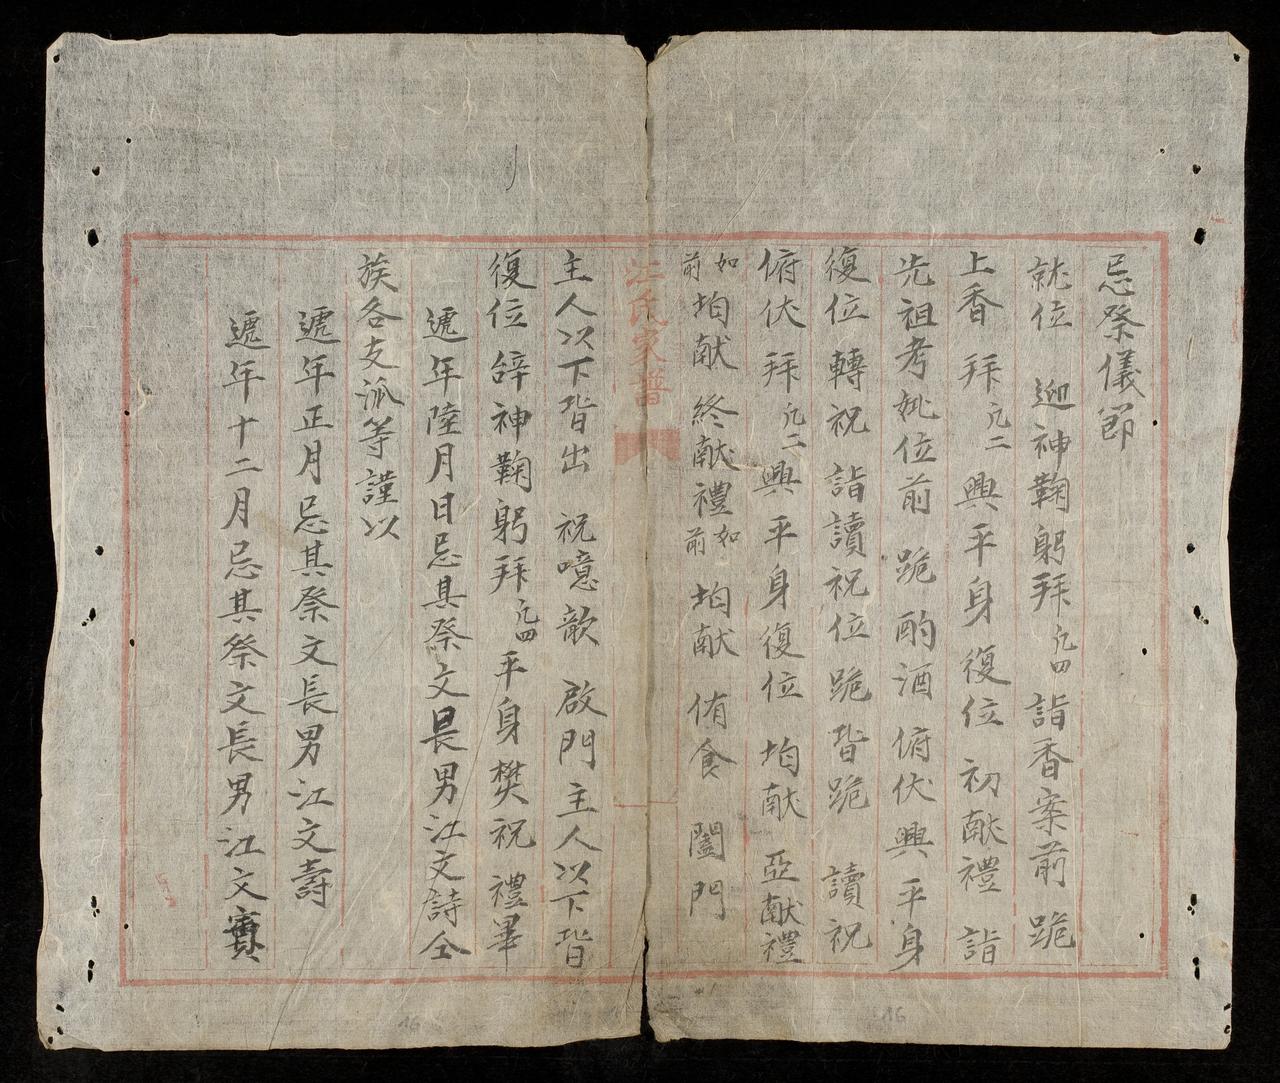 忌祭儀節
就位 迎神鞠躬拜凡四 詣香案前 跪
上香 拜凡二 興平身 復位 初献禮 詣
先祖考妣位前 跪 酌酒 俯伏 興 平身
復位 轉祝 詣讀祝位 跪 皆跪 讀祝
俯伏 拜凡二 興平身 復位 均献 亞献禮
如前均献 終献禮如前 均献 侑食 闔門
江氏家譜
主人以下皆出 祝噫歆 啟門主人以下皆
復位 辞神鞠躬拜凡四 平身 焚祝 禮畢
遞年陸月日忌其祭文長男江文詩仝
族各支派等謹以
遞年正月忌其祭文長男江文壽
遞年十二月忌其祭文長男江文寶
16
16